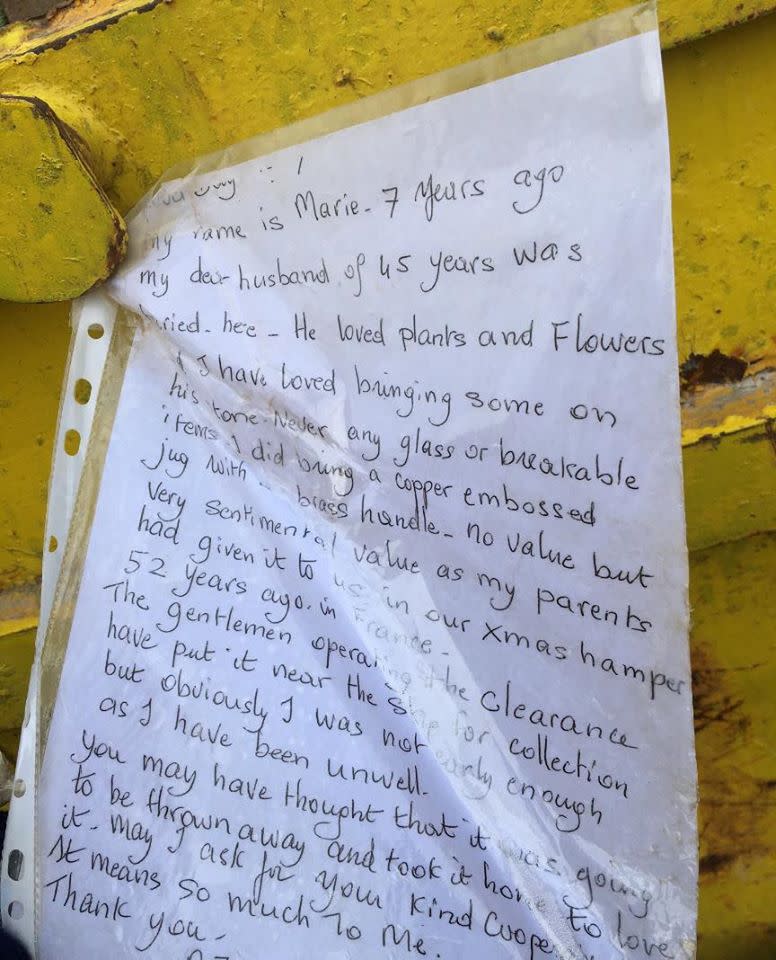 my name is Marie - 7 years ago
my dear husband of 45 years was
buried - here - He loved plants and Flowers
I have loved bringing some on
his tone - Never any glass or breakable
items I did bring a copper embossed
jug with brass handle - no value but
very sentimental value as my parents
had given it to us in our xmas hamper
52 years ago. in France -
The gentlemen operating the clearance
have put it near the for collection
but obviously I was not early enough
as I have been unwell.
you may have thought that it was going
to be thrown away and took it home to love
it - may I ask for your kind
It means so much to Me.
Thank you.